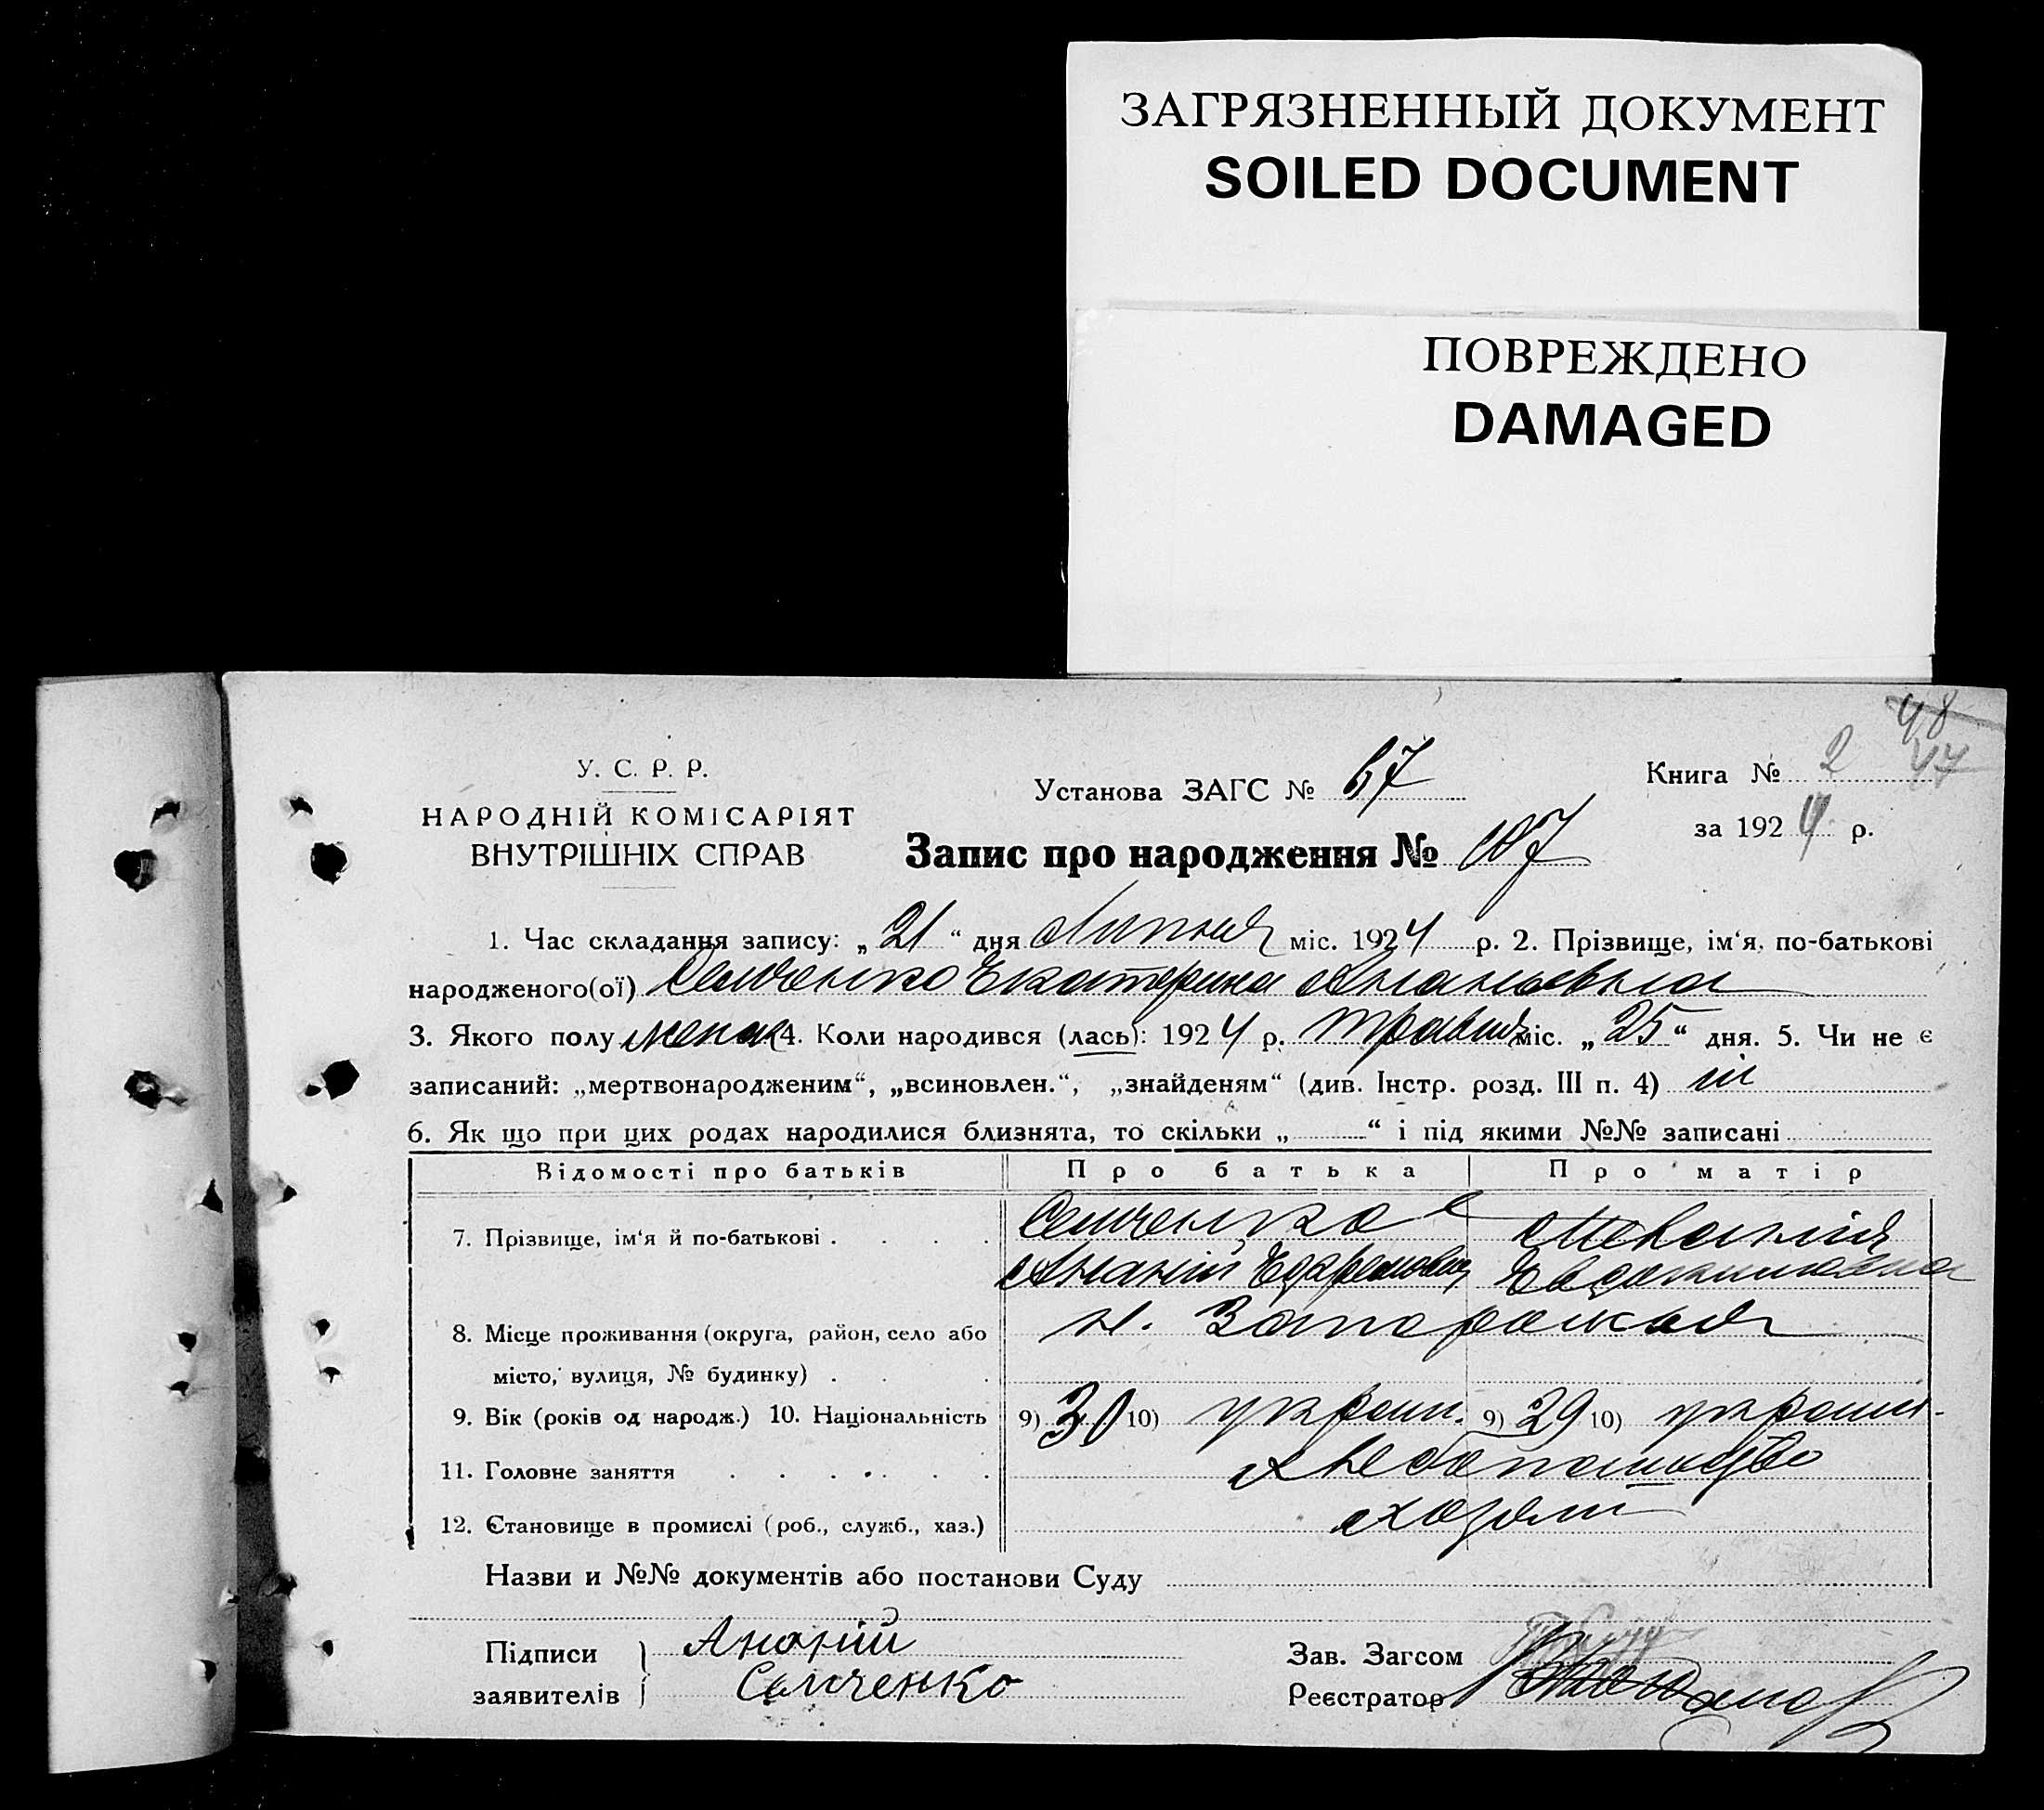 ЗАГРЯЗНЕННЫЙ ДОКУМЕНТ
SOILED DOCUMENT
ПОВРЕЖДЕНО
DAMAGED
48
47
У. С. Р. Р.
НАРОДНІЙ КОМІСАРІЯТ
ВНУТРІШНІХ СПРАВ
Установа ЗАГС № 67
Книга № 2
за 1924 р.
Запис про народження № 107
1. Час складання запису: „21“ дня Липня міс. 1924 р. 2. Прізвище, ім‘я, по-батькові
народженого(ої) Семченко Екатерина Ананьевна
3. Якого полу 4. Коли народився (лась): 1924 р. травня міс. „25“ дня. 5. Чи не є
записаний: „мертвонародженим“, „всиновлен.“, „знайденям“ (див. Інстр. розд. III п. 4) ні
6. Як що при цих родах народилися близнята, то скільки „ “ і під якими №№ записані
Відомості про батьків Про батька Про матір
7. Прізвище, ім‘я й по-батькові . . . . Семченко Меланія
Ананій Ефремович Евдокимовна
8. Місце проживання (округа, район, село або
місто, вулиця, № будинку) . . . Запорожья
9. Вік (років од народж.) 10. Національність 9) 30 10) украин. 9) 29 10) украин.
11. Головне заняття . . . . . . Хлебопашество
12. Становище в промислі (роб., служб., хаз.)
Назви и №№ документів або постанови Суду
Підписи
заявителів
Ананій
Семченко
Зав. Загсом
Реєстратор